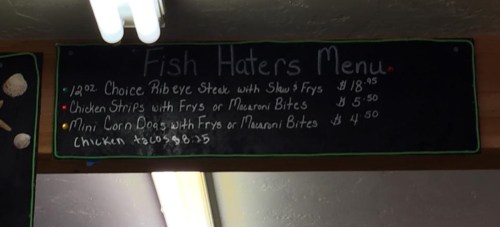 Fish Haters Menu
12oz Choice Ribeye Steak with Slaw & Frys $18.95
Chicken Strips with Frys or Macaroni Bites $5.50
Mini Corn Dogs with Frys or Macaroni Bites $4.50
Chicken tacos $8.25